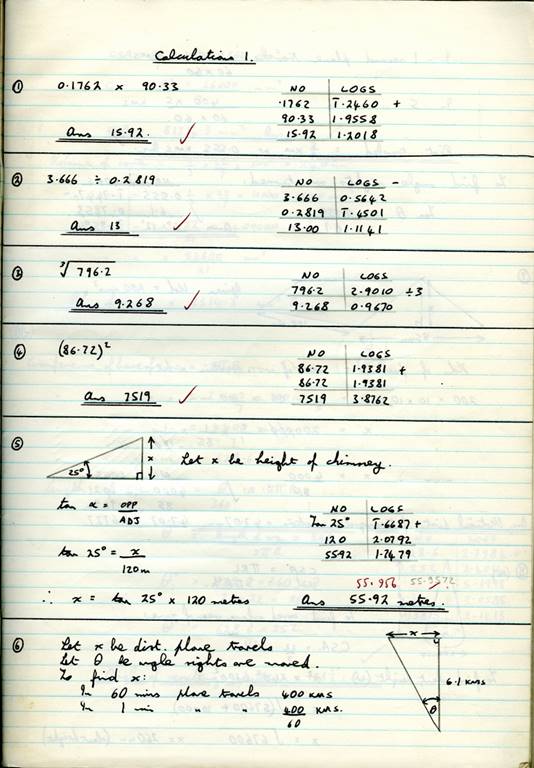 Calculations 1.
① 0.1762 x 90.33
NO LOGS
.1762 1̄.2460 +
90.33 1.9558
15.92 1.2018
Ans 15.92. ✓
② 3.666 ÷ 0.2819
NO LOGS -
3.666 0.5642
0.2819 1̄.4501
13.00 1.1141
Ans 13 ✓
③ ³√796.2
NO LOGS
796.2 2.9010 ÷3
9.268 0.9670
Ans 9.268 ✓
④ (86.72)²
NO LOGS
86.72 1.9381 +
86.72 1.9381
7519 3.8762
Ans 7519 ✓
⑤ 25° x Let x be height of chimney.
tan α = OPP
ADJ
NO LOGS
Tan 25° 1̄.6687 +
120 2.0792
5592 1.7479
tan 25° = x
120m
55.956 55.9572
∴ x = tan 25° x 120 metres
Ans 55.92 metres.
⑥ Let x be dist. plane travels
Let θ be angle sights are moved.
To find x:
In 60 mins plane travels 400 KMS
In 1 min " " 400 KMS.
60
x
6.1 KMS
θ